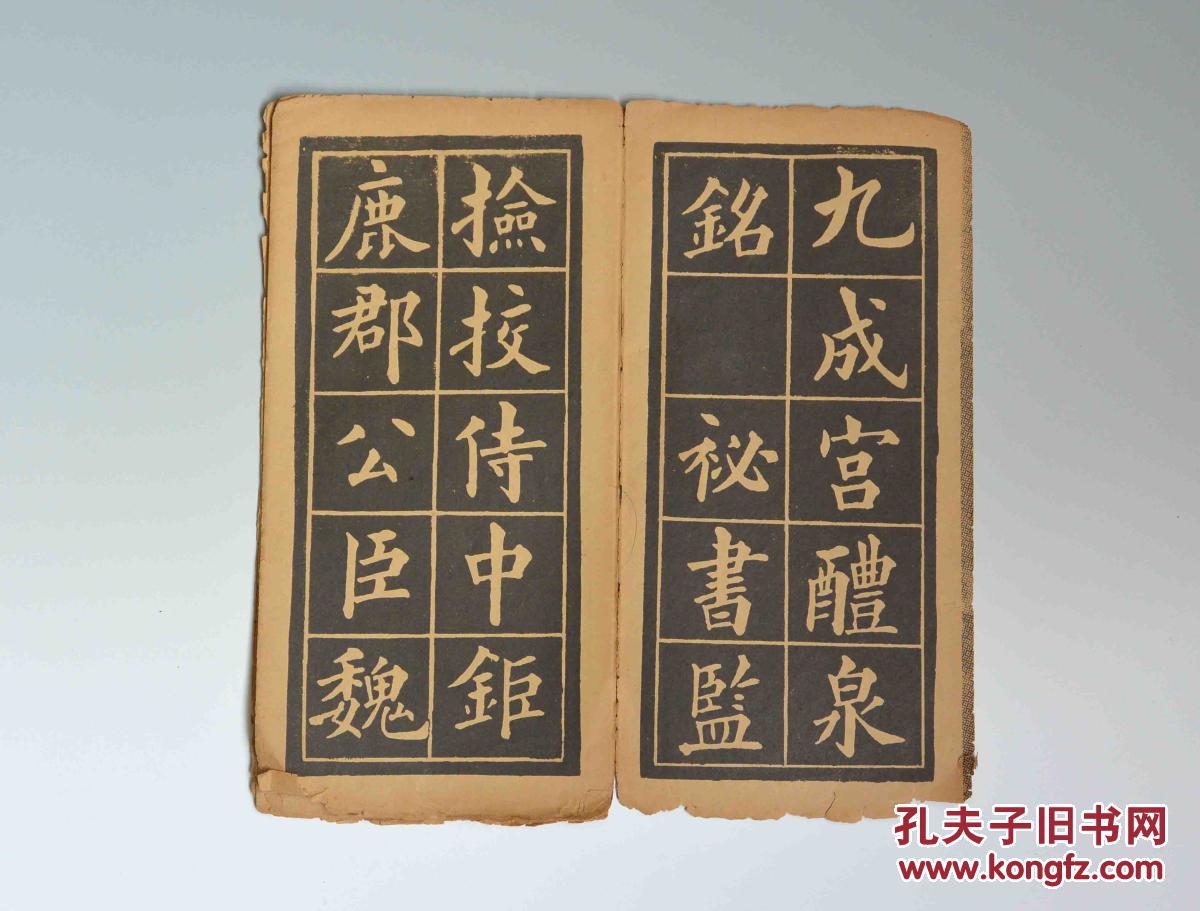 九成宮醴泉
銘 祕書監
撿挍侍中鉅
鹿郡公臣魏
孔夫子旧书网
www.kongfz.com